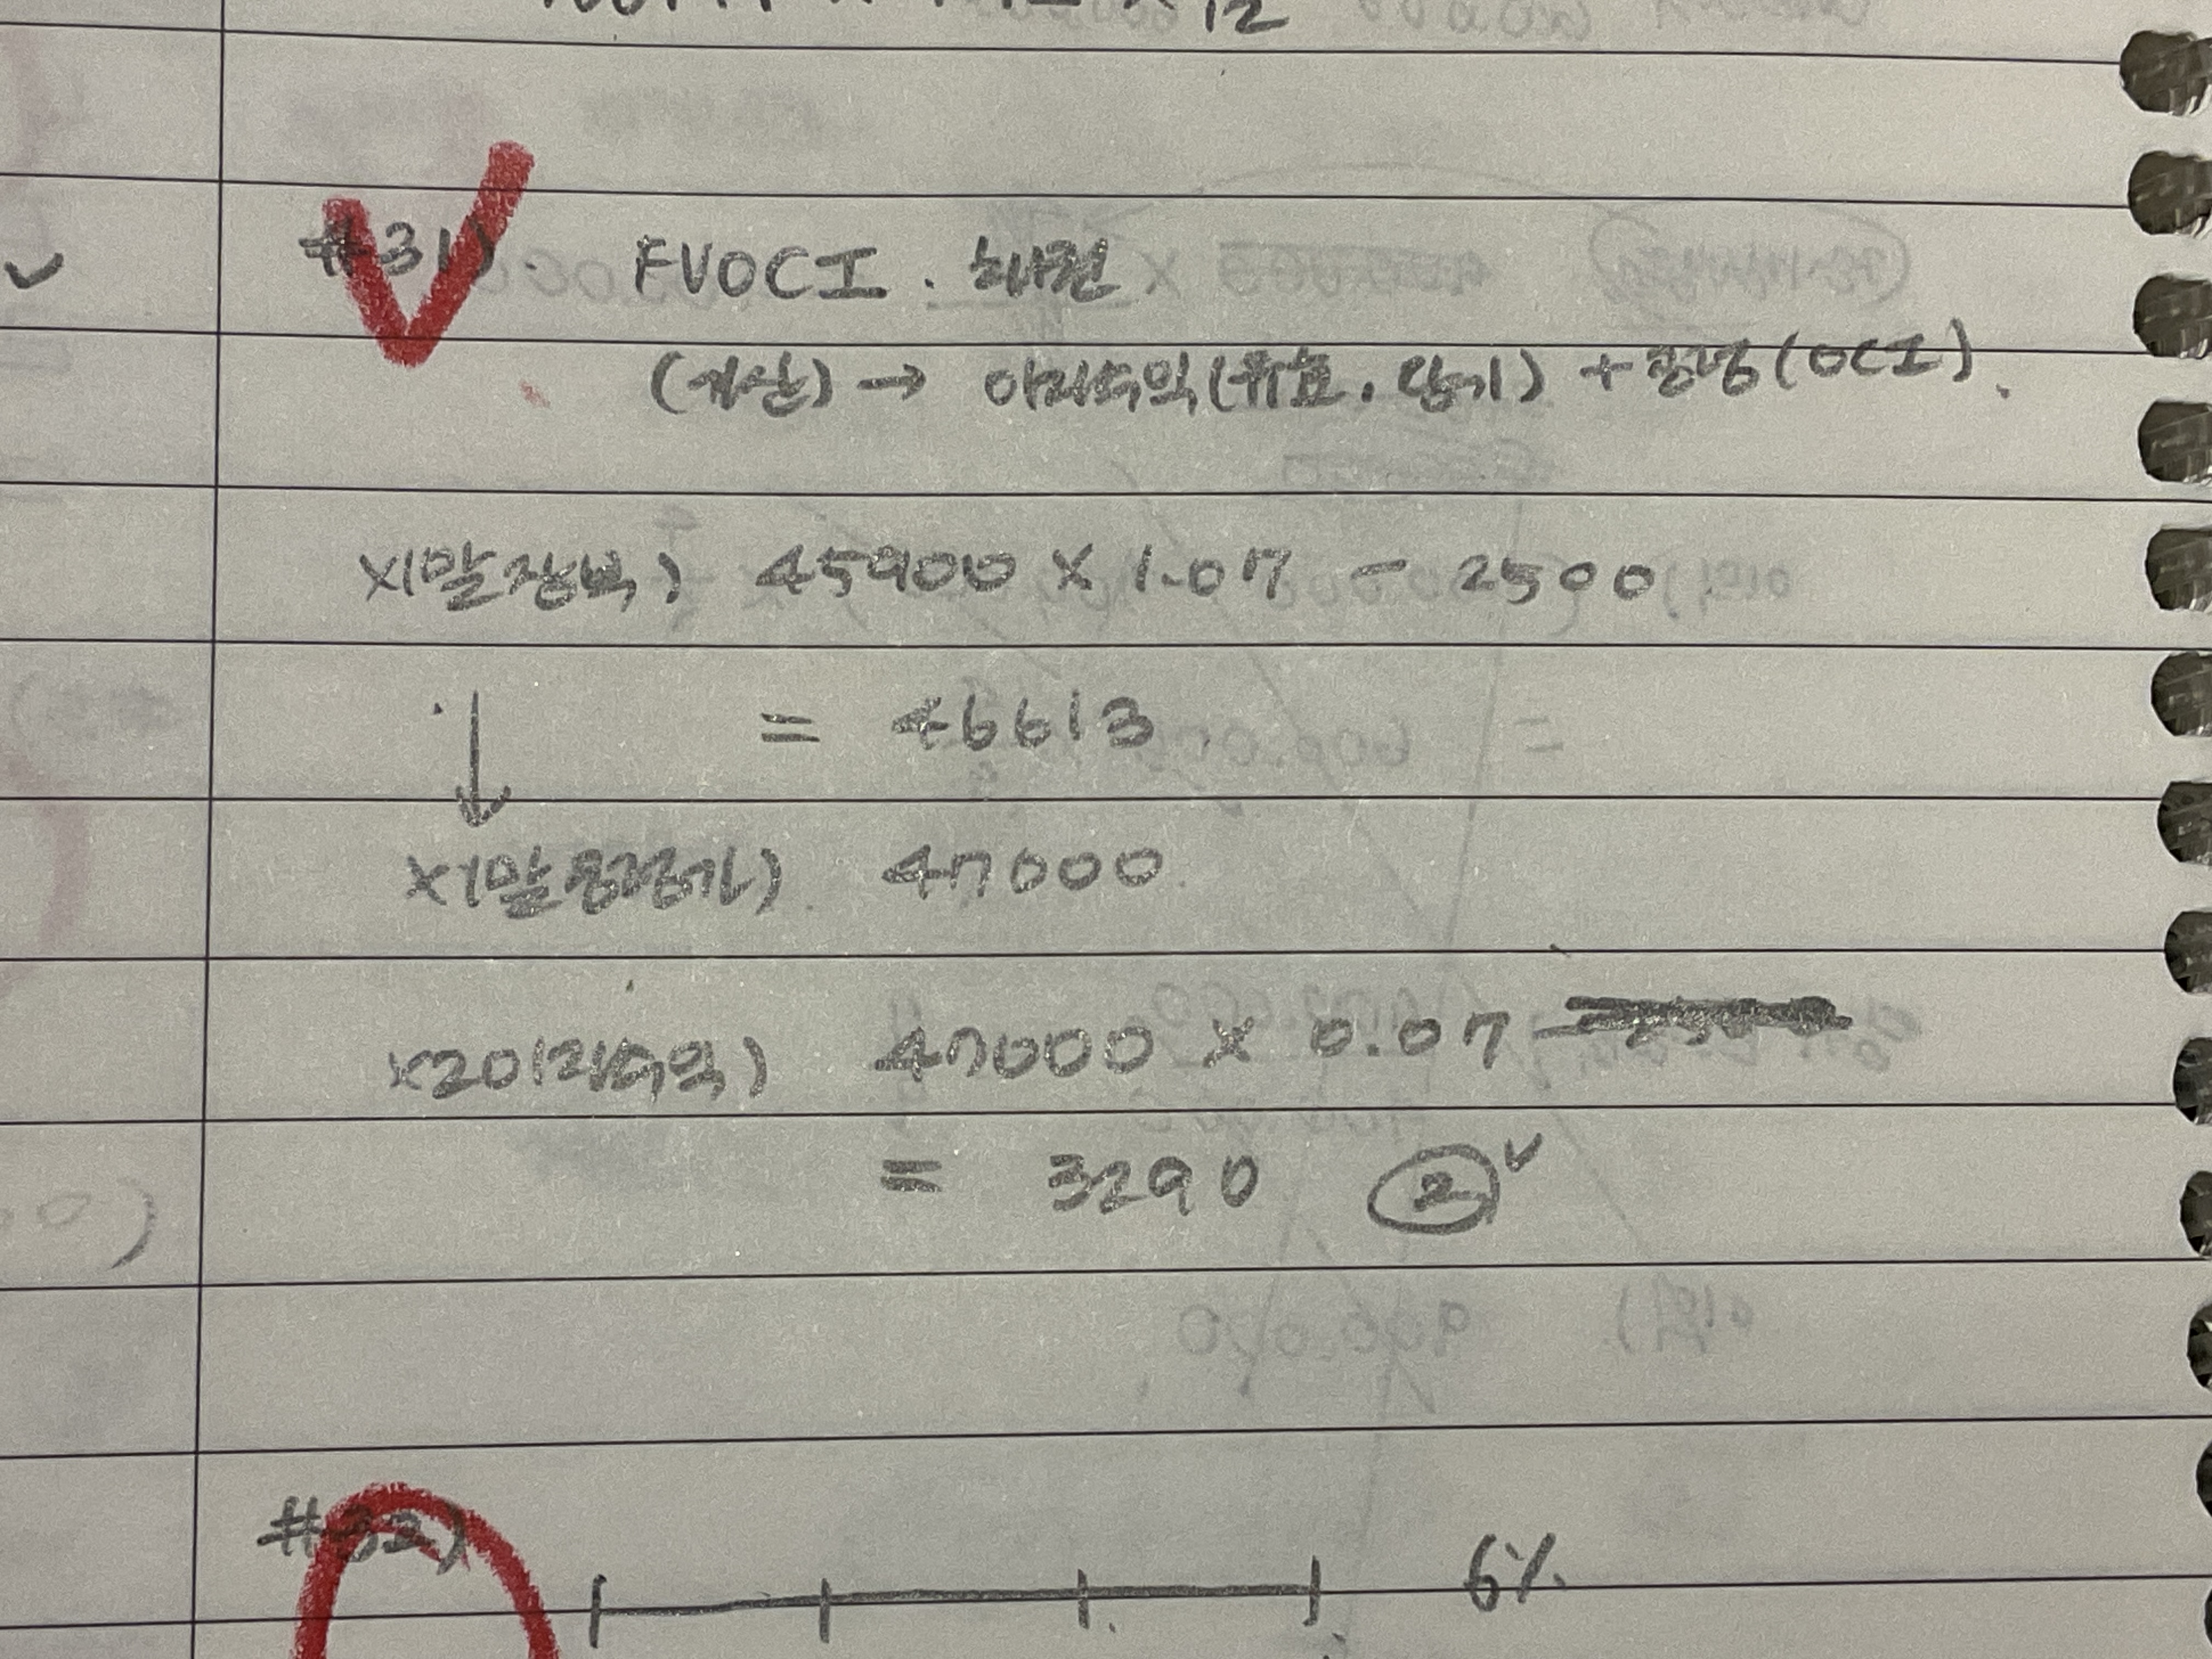 12
#31) FVOCI. 채권
(계산) → 이자수익(유효, 당기) + 공정(OCI).
X1말장부) 45900 × 1.07 - 2500
↓ = 46613
X1말공정가) 47000
X2이자수익) 47000 × 0.07
= 3290 ②
#32)
6%